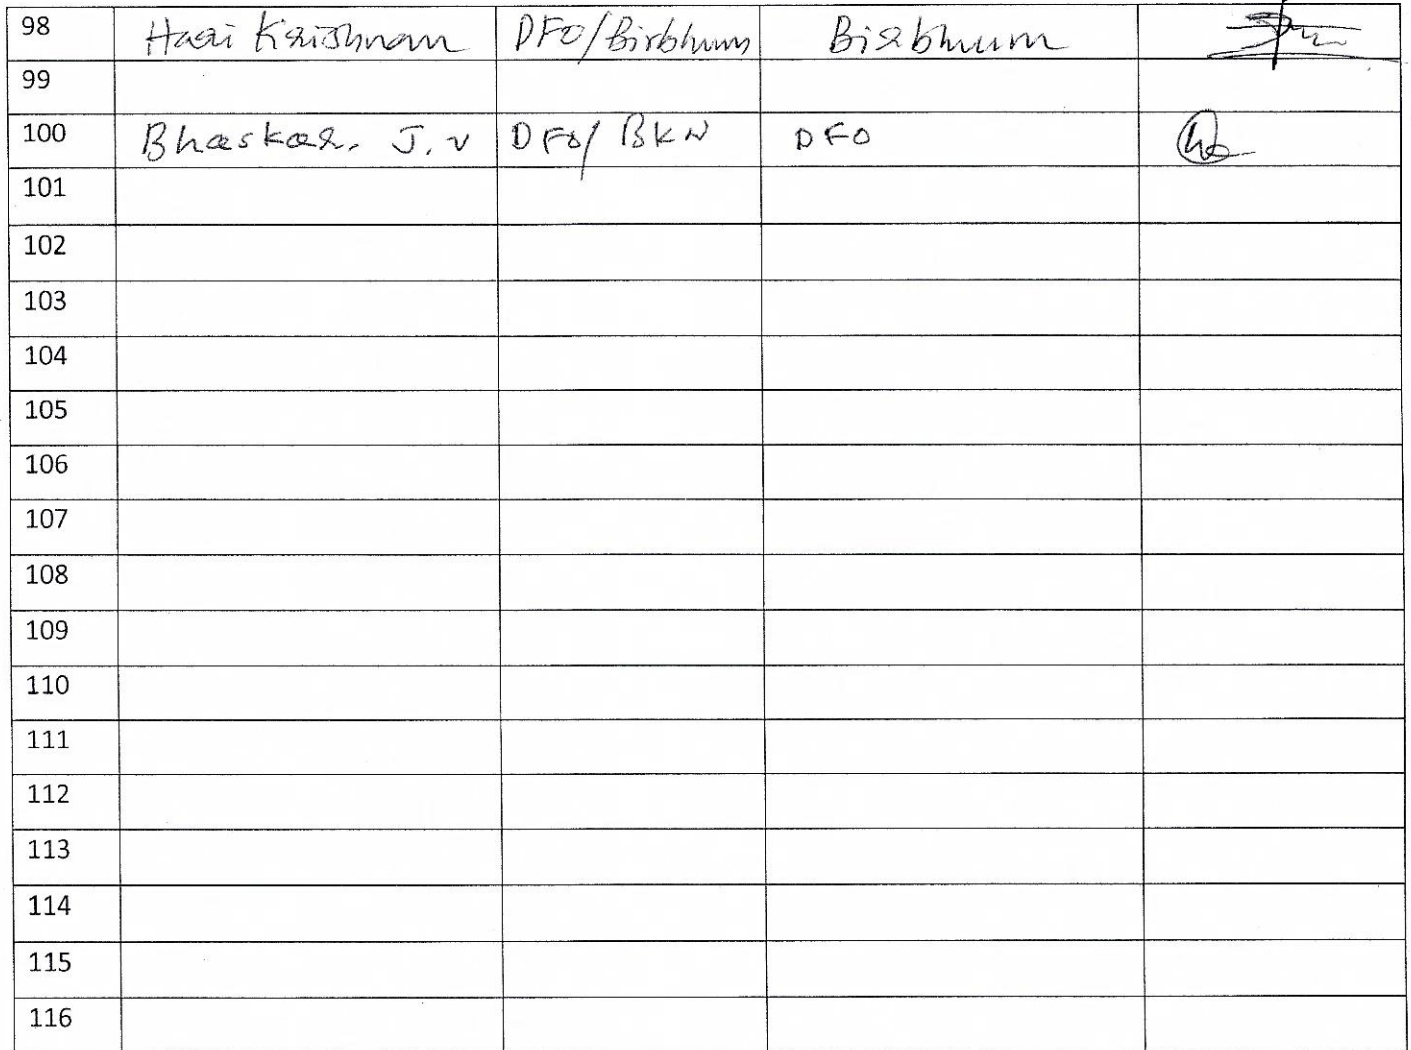 98 Hari Krishnan DFO/Birbhum Birbhum
99
100 Bhaskar. J.V DFO/BKN DFO
101
102
103
104
105
106
107
108
109
110
111
112
113
114
115
116